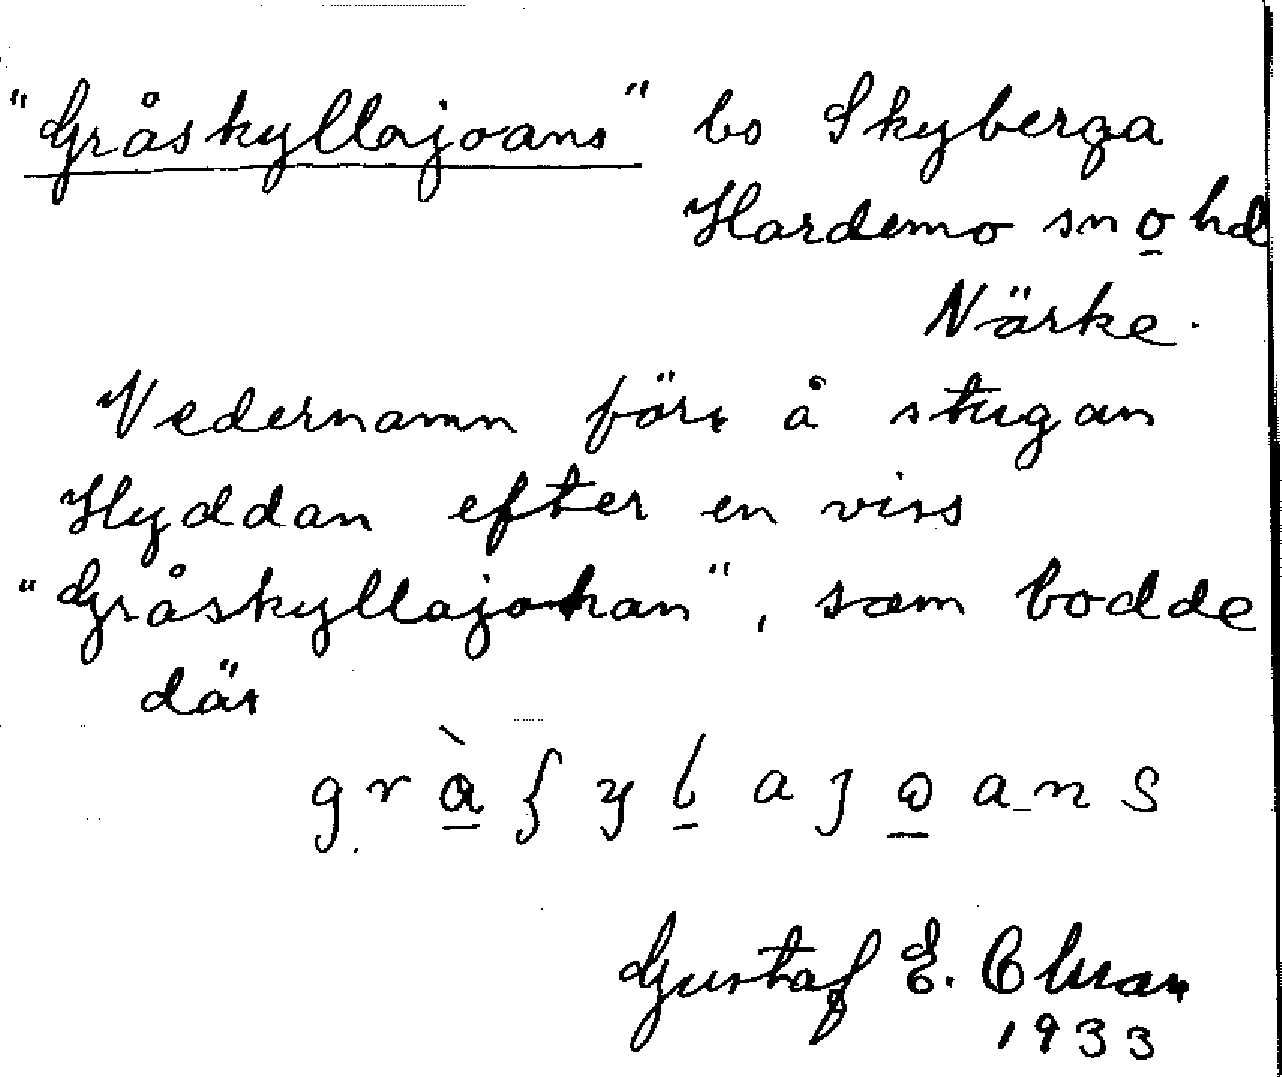 "Gråskyllajoans" bo Skyberga
Hardemo sn o hd
Närke.
Vedernamn före å stugan
Hyddan efter en viss
"Gråskyllajohan", som bodde
där
Gustaf E.
1933